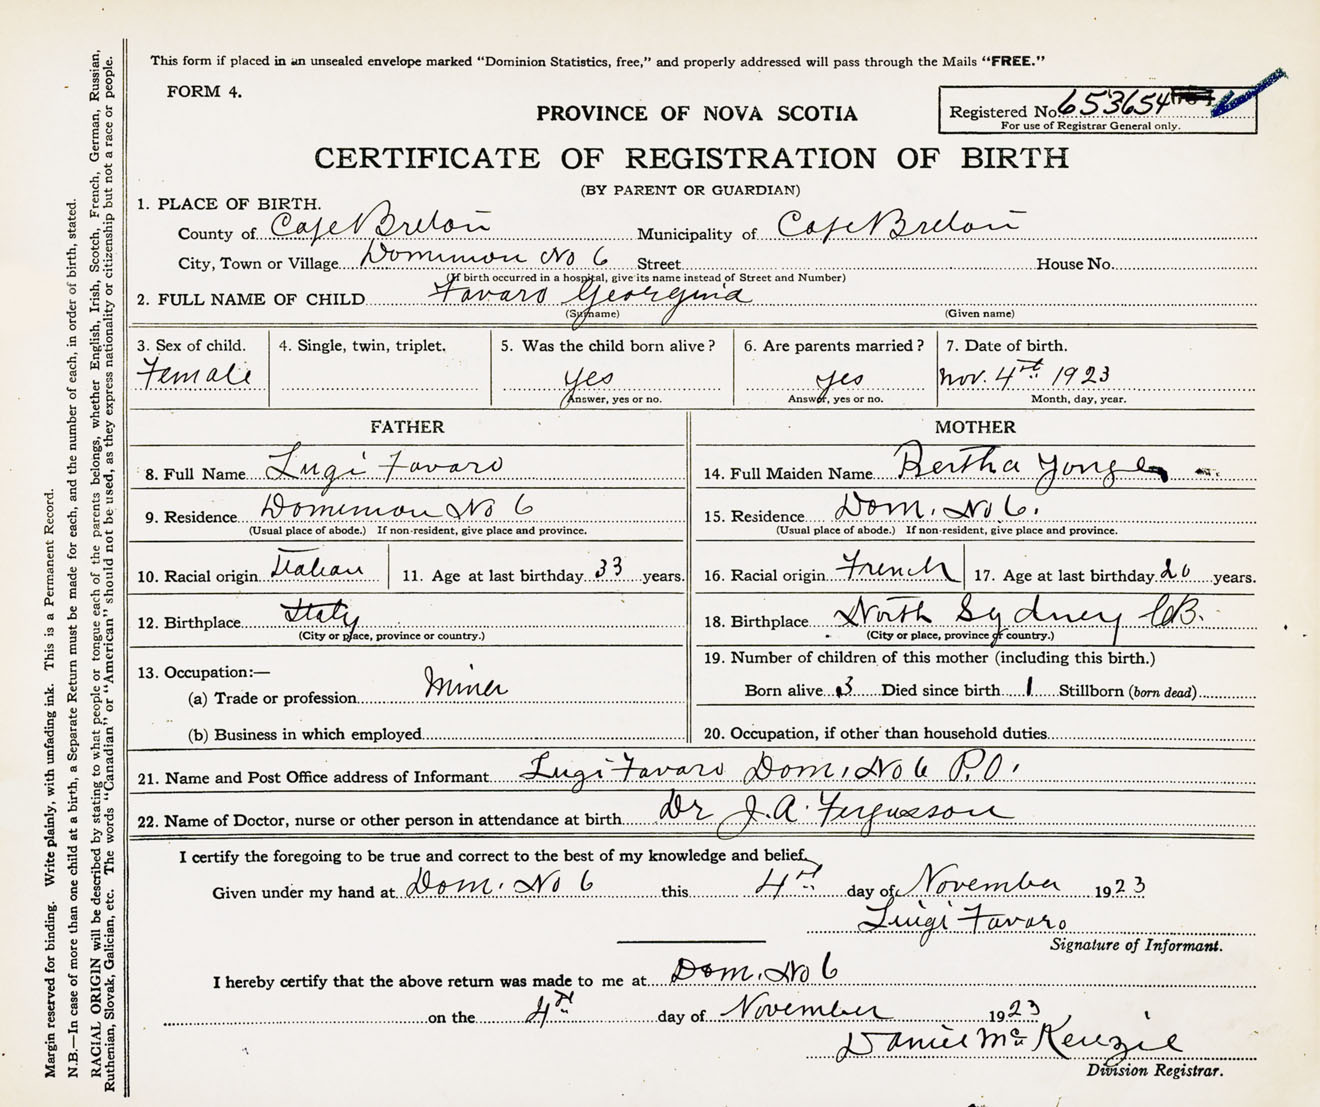 This form if placed in an unsealed envelope marked "Dominion Statistics, free," and properly addressed will pass through the Mails "FREE."
FORM 4.
Registered No. 653654
For use of Registrar General only.
PROVINCE OF NOVA SCOTIA
CERTIFICATE OF REGISTRATION OF BIRTH
(BY PARENT OR GUARDIAN)
1. PLACE OF BIRTH.
County of Cape Breton Municipality of Cape Breton
City, Town or Village Dominion No 6 Street House No.
(If birth occurred in a hospital, give its name instead of Street and Number)
2. FULL NAME OF CHILD Favaro Georgina
(Surname) (Given name)
3. Sex of child. 4. Single, twin, triplet. 5. Was the child born alive? 6. Are parents married? 7. Date of birth.
Female yes yes Nov. 4th 1923
Answer, yes or no. Answer, yes or no. Month, day, year.
FATHER MOTHER
8. Full Name Lugi Favaro 14. Full Maiden Name Bertha Yonge
9. Residence Dominion No 6 15. Residence Dom. No 6.
(Usual place of abode.) If non-resident, give place and province. (Usual place of abode.) If non-resident, give place and province.
10. Racial origin Italian 11. Age at last birthday 33 years. 16. Racial origin French 17. Age at last birthday 20 years.
12. Birthplace Italy 18. Birthplace North Sydney C.B.
(City or place, province or country.) (City or place, province or country.)
13. Occupation:— 19. Number of children of this mother (including this birth.)
(a) Trade or profession Miner Born alive 3 Died since birth 1 Stillborn (born dead)
(b) Business in which employed 20. Occupation, if other than household duties
21. Name and Post Office address of Informant Lugi Favaro Dom. No 6 P.O.
22. Name of Doctor, nurse or other person in attendance at birth Dr J.A. Fergusson
I certify the foregoing to be true and correct to the best of my knowledge and belief,
Given under my hand at Dom. No 6 this 4th day of November 1923
Luigi Favaro
Signature of Informant.
I hereby certify that the above return was made to me at Dom. No 6
on the 4th day of November 1923
Daniel McKenzie
Division Registrar.
Margin reserved for binding. Write plainly, with unfading ink. This is a Permanent Record.
N.B.—In case of more than one child at a birth, a Separate Return must be made for each, and the number of each, in order of birth, stated.
RACIAL ORIGIN will be described by stating to what people or tongue each of the parents belongs, whether English, Irish, Scotch, French, German, Russian,
Ruthenian, Slovak, Galician, etc. The words "Canadian" or "American" should not be used, as they express nationality or citizenship but not a race or people.